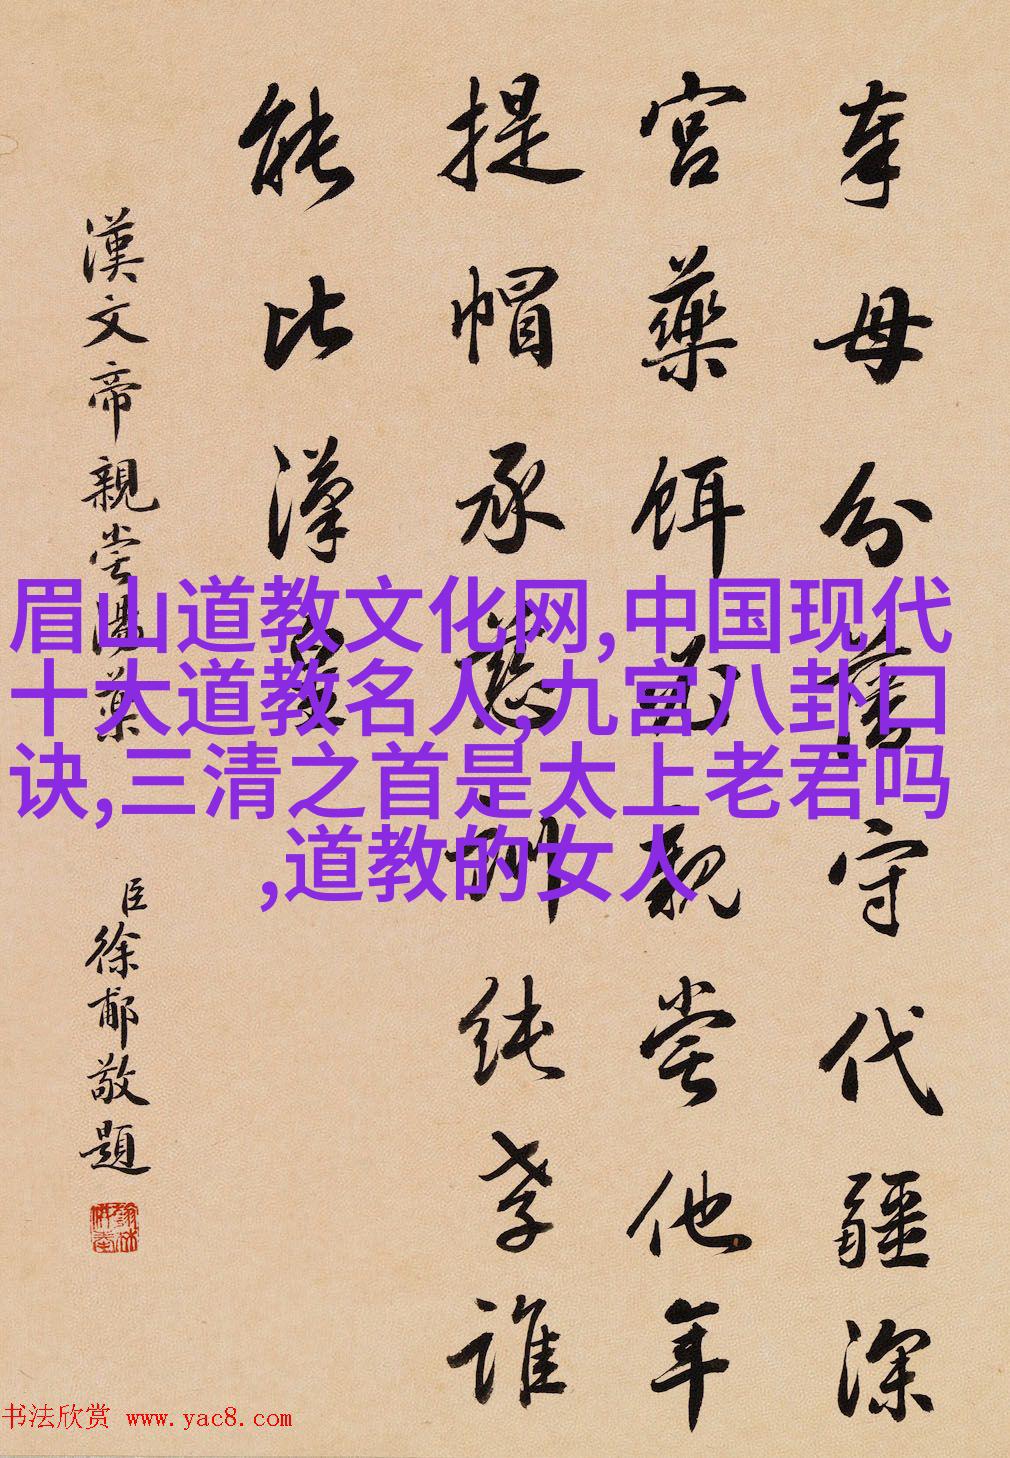 奉母分藩守代疆深
宮藥餌必親嘗他年
提帽承慈訓純孝誰
能比漢皇
漢文帝親嘗湯藥
臣徐郙敬題
眉山道教文化网,中国现代
十大道教名人,九宫八卦口
诀,三清之首是太上老君吗
,道教的女人
书法欣赏 www.yac8.com